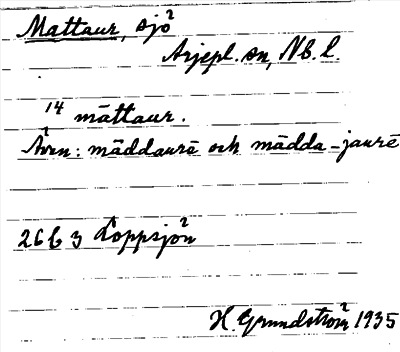 Mattaur, sjö
Arjepl. sn, Nb. l.
14 māttaur.
Även: māddaurē och mādda-jaurē
26 b 3 Loppsjön
H. Grundström 1935